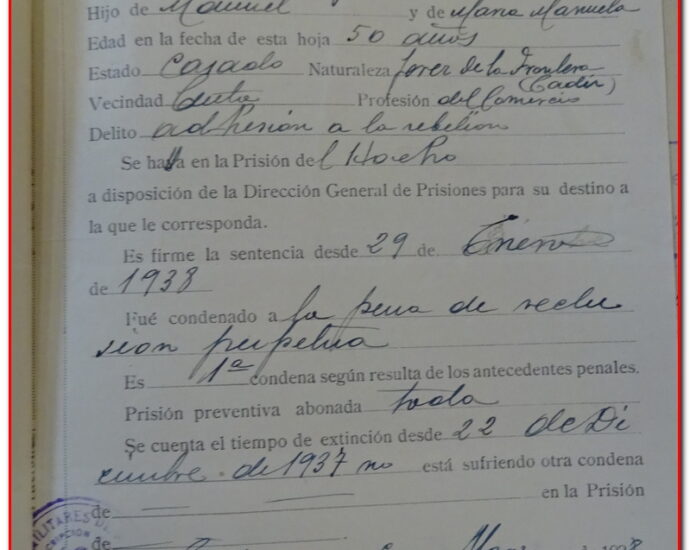 Hijo de Manuel y de Maria Manuela
Edad en la fecha de esta hoja 50 años
Estado Casado Naturaleza Jerez de la Frontera
(Cadiz)
Vecindad Ceuta Profesión del Comercio
Delito adhesión a la rebelion
Se halla en la Prisión del Hacho
a disposición de la Dirección General de Prisiones para su destino a
la que le corresponda.
Es firme la sentencia desde 29 de Enero
de 1938
Fué condenado a la pena de reclu
sion perpetua
Es 1ª condena según resulta de los antecedentes penales.
Prisión preventiva abonada toda
Se cuenta el tiempo de extinción desde 22 de Di
ciembre de 1937 no está sufriendo otra condena
en la Prisión
de
MILITARES DE
de